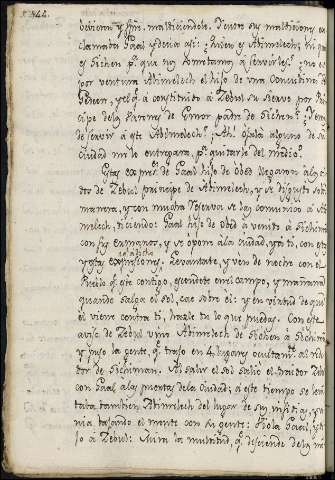 344.
bevieron, y fue. maldiciendole. Entre sus maldiciones ex-
clamaba Gaal y decia asi: ¿Quien es Abimelech, y q.
es Sichen p.a que nos sometamos, a servirle? ¿no es
por ventura Abimelech el hijo de una Concubina
Gedeon, y el q.e a constituido a Zebul su siervo por Prin
cipe de la Parens de Emor padre de Sichen?
de servir a este Abimelech? Ah! Ojalá alguno de su
Ciudad me lo entregara, p.a quitarle del medio.
Estas expres. de Gaal hijo de Obed llegaron a los
dos de Zebul principe de Abimelech, y se disgustó sobre
manera, y con mucha reserva se las comunicó a Abi
melech, diciendo: Gaal hijo de Obed a venido a Sichima
con sus ermanos, y se opone a la Ciudad, y a ti, con esto
y estas expresiones. Levantate, y ven de noche con el
Pueblo q.e este contigo, escondete en el campo, y mañana
quando salga el sol, cae sobre el: y en virtud de que
el viene contra ti, hazle tu lo que puedas. Con este
aviso de Zebul vino Abimelech de Sichen a Sichima
y puso la gente, q.e trajo en 4 lugares ocultam.te al rede
dor de Sichiman. Al salir el sol salió el traidor Zebul
con Gaal a las puertas de la Ciudad; a este tiempo se levan
taba tambien Abimelech del lugar de sus insidias, y ve
nia bajando el monte con su gente: Viola Gaal, y di
jo a Zebul: Mira la multitud, q.e desciende de los mo